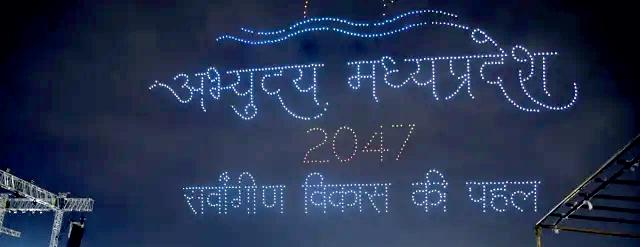 अभ्युदय मध्यप्रदेश
2047
सर्वांगीण विकास की पहल